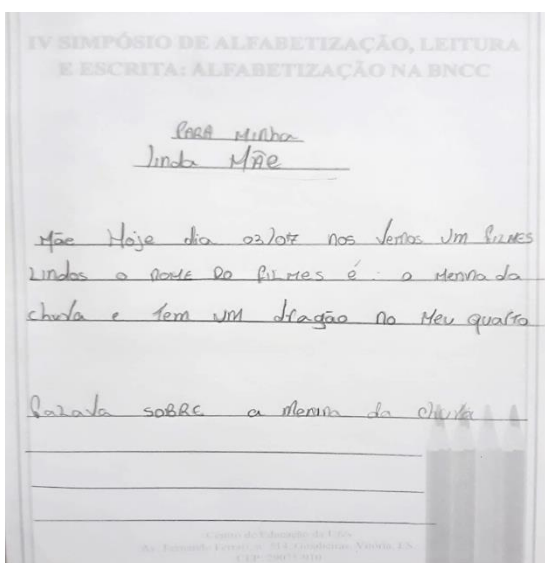 IV SIMPÓSIO DE ALFABETIZAÇÃO, LEITURA
E ESCRITA: ALFABETIZAÇÃO NA BNCC
PARA Minha
linda MÃE
Mãe Hoje dia 03/07 nos Vemos Um FILMES
LINDOS o NOME DO FILMES é: o Menina da
chuva e Tem UM dragão no Meu quarto
Falava SOBRE a menina da chuva
Centro de Educação da Ufes
Av. Fernando Ferrari, nº 514, Goiabeiras, Vitória, ES.
CEP 29075-910